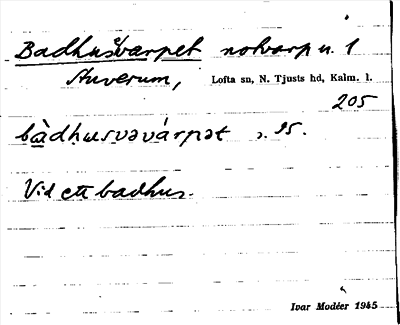 Badhusvarpet notvarp n. 1
Auverum, Lofta sn, N. Tjusts hd, Kalm. l.
205
bàdḥusvəvárpət s. 95.
Vid ett badhus.
Ivar Modéer 1945